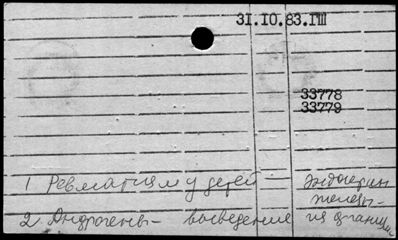 31.10.83.ГШ
33778
33779
1 Ревматизм у детей — эндокрин
железы-
2 Андрогены- выведение из организ